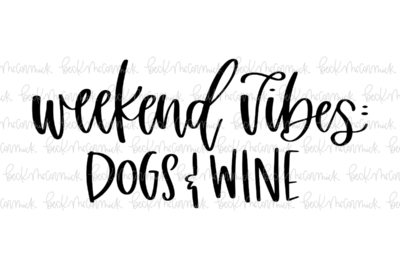 weekend vibes:
DOGS & WINE